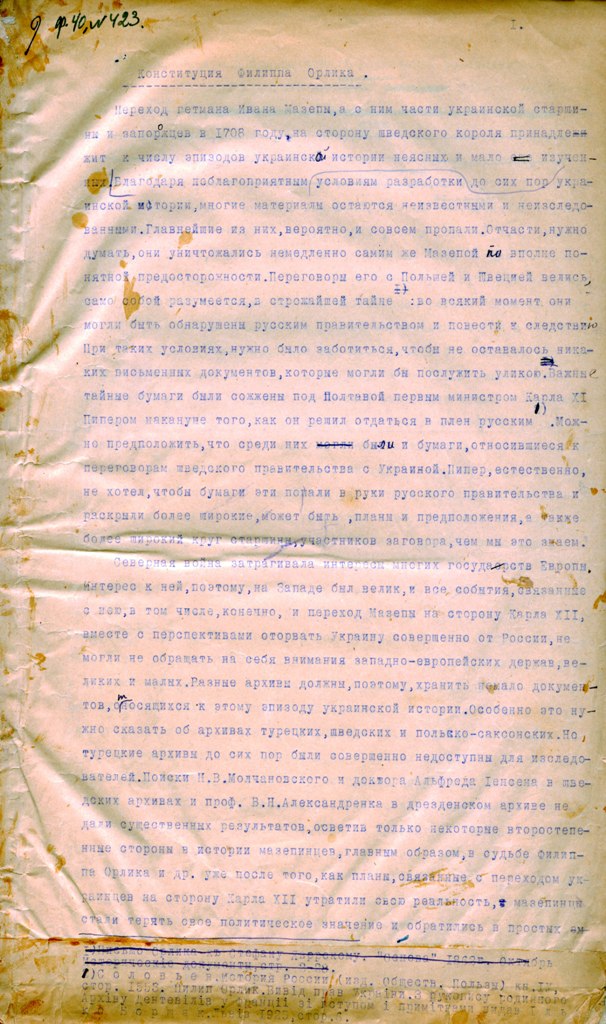 9 ф.40, № 423.
1.
Конституция Филиппа Орлика .
Переход гетмана Ивана Мазепы,а с ним части украинской старши-
ны и запорожцев в 1708 году,на сторону шведского короля принадле-
жит к числу эпизодов украинской истории неясных и мало изучен-
ных.Благодаря неблагоприятным условиям разработки до сих пор укра-
инской истории,многие материалы остаются неизвестными и неизследо-
ванными.Главнейшие из них,вероятно,и совсем пропали.Отчасти,нужно
думать,они уничтожались немедленно самим же Мазепой по вполне по-
нятной предосторожности.Переговоры его с Польшей и Швецией велись,
само собой разумеется,в строжайшей тайне :во всякий момент они
могли быть обнаружены русским правительством и повести к следствию
При таких условиях,нужно было заботиться,чтобы не оставалось ника-
ких письменных документов,которые могли бы послужить уликою.Важные
тайные бумаги были сожжены под Полтавой первым министром Карла XI
Пипером накануне того,как он решил отдаться в плен русским 1) .Мож-
но предположить,что среди них могли были и бумаги,относившиеся к
переговорам шведского правительства с Украиной.Пипер,естественно,
не хотел,чтобы бумаги эти попали в руки русского правительства и
раскрыли более широкие,может быть ,планы и предположения,а также
более широкий круг старшины,участников заговора,чем мы это знаем.
Северная война затрагивала интересы многих государств Европы.
Интерес к ней,поэтому,на Западе был велик,и все события,связанные
с нею,в том числе,конечно, и переход Мазепы на сторону Карла XII,
вместе с перспективами оторвать Украину совершенно от России,не
могли не обращать на себя внимания западно-европейских держав,ве-
ликих и малых.Разные архивы должны,поэтому,хранить немало докумен-
тов,относящихся к этому эпизоду украинской истории.Особенно это ну-
жно сказать об архивах турецких,шведских и польско-саксонских.Но
турецкие архивы до сих пор были совершенно недоступны для изследо-
вателей.Поиски Н.В.Молчановского и доктора Альфреда Іенсена в шве-
дских архивах и проф. В.Н.Александренка в дрезденском архиве не
дали существенных результатов,осветив только некоторые второстепе-
нные стороны в истории мазепинцев,главным образом,в судьбе Филип-
па Орлика и др. уже после того,как планы,связанные с переходом ук-
раинцев на сторону Карла XII утратили свою реальность, мазепинцы
стали терять свое политическое значение и обратились в простых эм-
Орлика Октябрь
1)Соловьев.История России (изд. Обществ. Пользы) кн.
стор. Пилип Орлик.Вивід прав України.З рукопису родинного
Архіву Дентевілів у Франції зі вступом і примітками видав